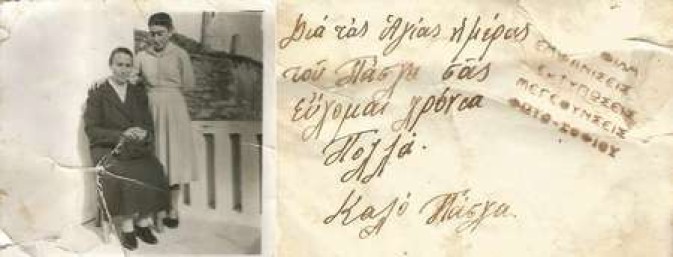 Διά τάς Ἁγίας ἡμέρας
τοῦ Πάσχα σᾶς
εὔχομαι χρόνια
Πολλά.
Καλό Πάσχα.
ΦΙΛΜ
ΕΜΦΑΝΙΣΕΙΣ
ΕΚΤΥΠΩΣΕΙΣ
ΜΕΓΕΘΥΝΣΕΙΣ
ΦΩΤΟ-ΣΟΦΙΟΥ